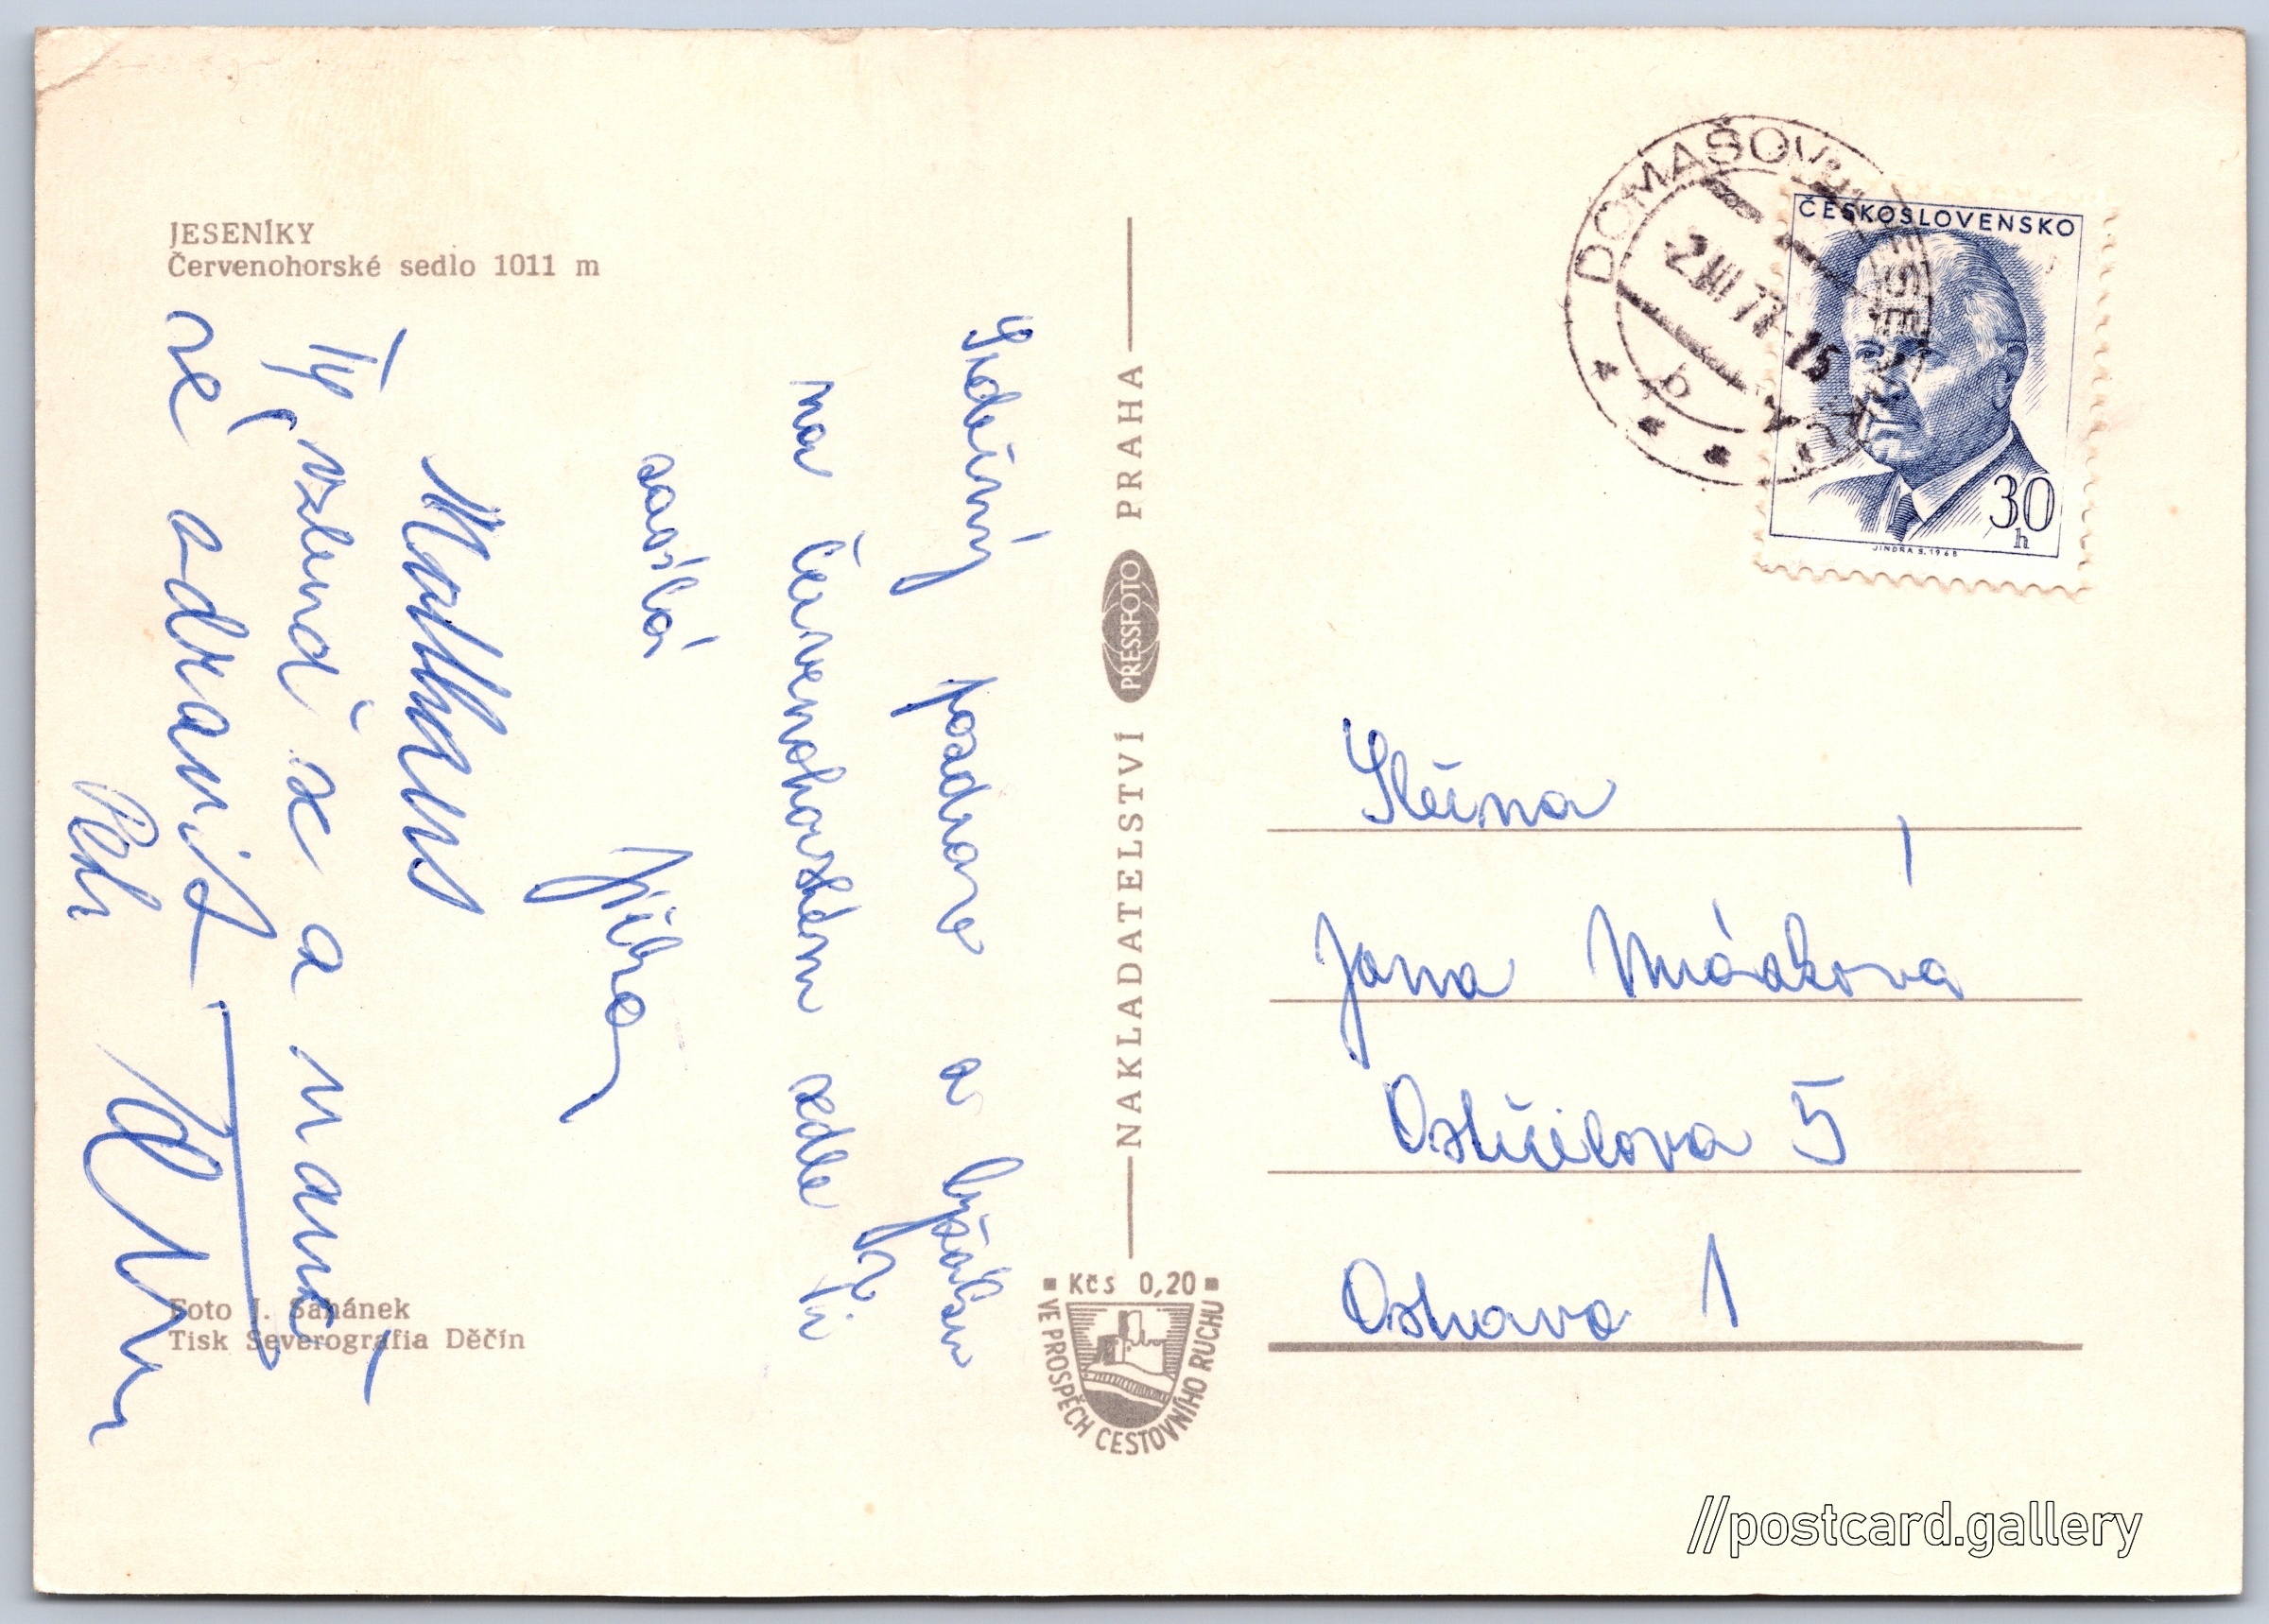 JESENÍKY
Červenohorské sedlo 1011 m
Srdečný pozdrav z lyžáku
na Červenohorském sedle Ti
zasílá
Jiřka
Ty, vzchop se a
se zdravit
Petr
Foto J. Sahánek
Tisk Severografia Děčín
NAKLADATELSTVÍ PRESSFOTO PRAHA
Kčs 0,20
VE PROSPĚCH CESTOVNÍHO RUCHU
DOMAŠOV U JESENÍKA
-2.III 77-15
b
ČESKOSLOVENSKO
30
h
JINDRA S. 1968
Slečna
Jana Mrázková
Ostrčilova 5
Ostrava 1
//postcard.gallery